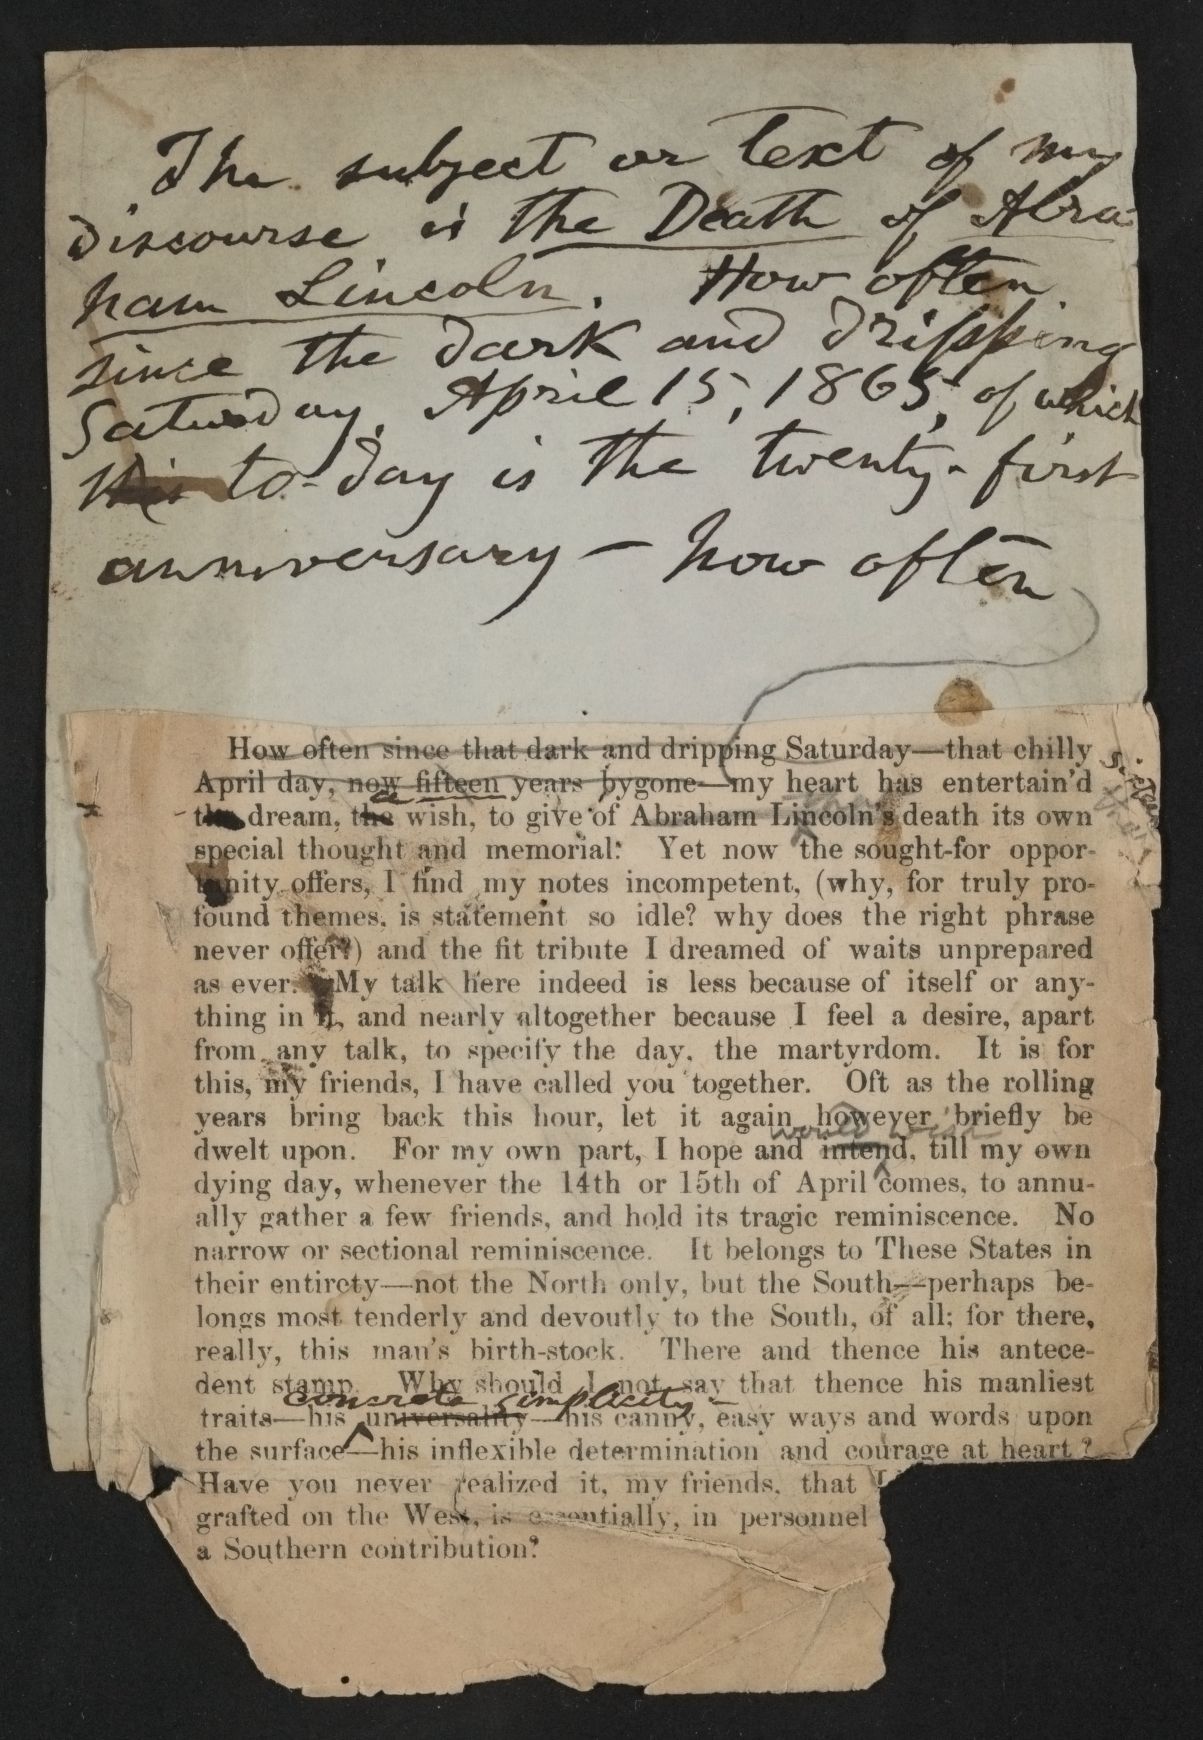 The subject or text of my
discourse is the Death of Abra-
ham Lincoln. How often
since the dark and dripping
Saturday, April 15, 1865, of which
this to-day is the twenty-first
anniversary — how often
How often since that dark and dripping Saturday—that chilly
April day, now fifteen years bygone—my heart has entertain'd
a
the dream, the wish, to give of Abraham Lincoln's death its own
special thought and memorial: Yet now the sought-for oppor-
tunity offers, I find my notes incompetent, (why, for truly pro-
found themes, is statement so idle? why does the right phrase
never offer?) and the fit tribute I dreamed of waits unprepared
as ever. My talk here indeed is less because of itself or any-
thing in it, and nearly altogether because I feel a desire, apart
from any talk, to specify the day, the martyrdom. It is for
this, my friends, I have called you together. Oft as the rolling
years bring back this hour, let it again, however briefly be
would wish
dwelt upon. For my own part, I hope and intend, till my own
dying day, whenever the 14th or 15th of April comes, to annu-
ally gather a few friends, and hold its tragic reminiscence. No
narrow or sectional reminiscence. It belongs to These States in
their entirety—not the North only, but the South—perhaps be-
longs most tenderly and devoutly to the South, of all; for there,
really, this man's birth-stock. There and thence his antece-
dent stamp. Why should I not say that thence his manliest
concrete simplicity—
traits—his universality—his canny, easy ways and words upon
the surface—his inflexible determination and courage at heart?
Have you never realized it, my friends, that
grafted on the West, is essentially, in personnel
a Southern contribution?